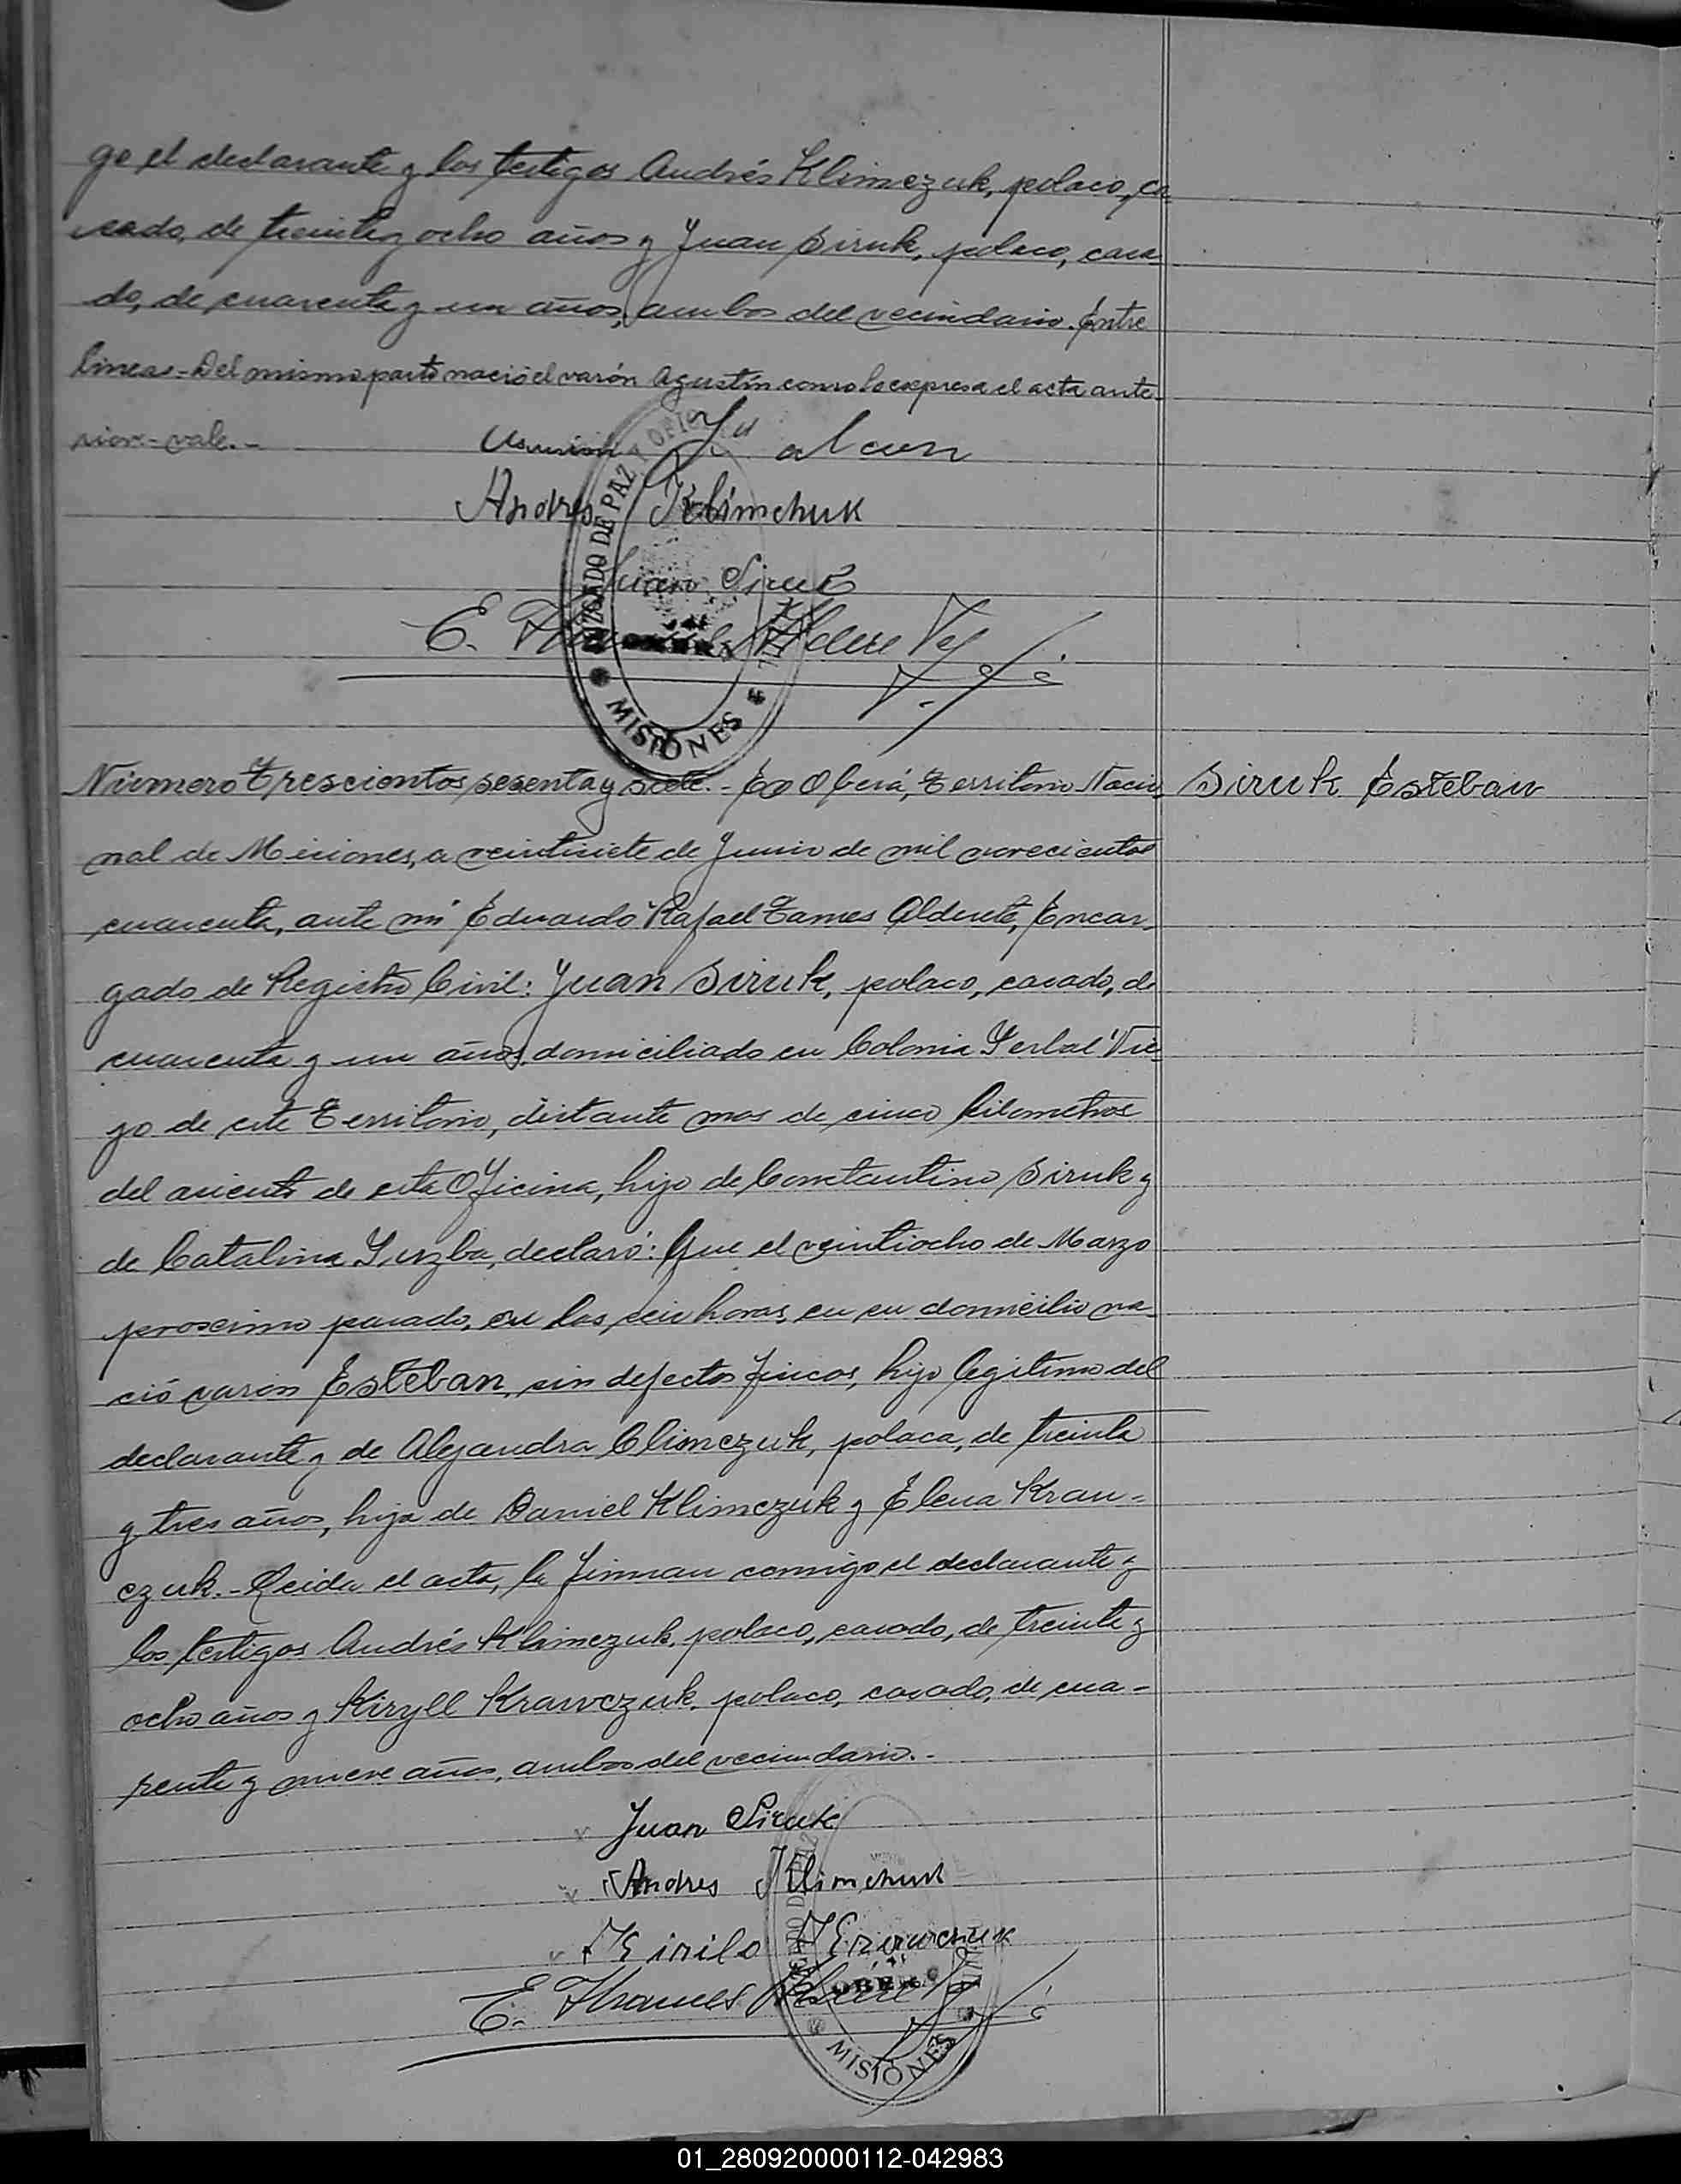 go el declarante y los testigos Andrés Klimczuk, polaco, ca
sado, de treinta y ocho años y Juan Siruk, polaco, casa-
do, de cuarenta y un años, ambos del vecindario. Entre
lineas - Del mismo parto nació el varón Agustín como lo expresa el acta ante-
rior - vale. -
Andres Klimchuk
Siruk
JUZGADO DE PAZ
MISIONES
Número Trescientos sesenta y siete. - En Oberá, Territorio Nacio Siruk Esteban
nal de Misiones, a veintisiete de Junio de mil novecientos
cuarenta, ante mi Eduardo Rafael Tames Alderete, Encar-
gado de Registro Civil: Juan Siruk, polaco, casado, de
cuarenta y un años, domiciliado en Colonia Yerbal Vie
jo de este Territorio, distante mas de cinco kilometros
del asiento de esta Oficina, hijo de Constantino Siruk y
de Catalina, declaró: Que el veintiocho de Marzo
proximo pasado, en las seis horas, en su domicilio na-
ció varón Esteban, sin defectos fisicos, hijo legitimo del
declarante y de Alejandra Climczuk, polaca, de treinta
y tres años, hija de Daniel Klimczuk y Elena Krau-
czuk. - Leida el acta, la firman conmigo el declarante y
los testigos Andrés Klimczuk, polaco, casado, de treinta y
ocho años y Kiryll Krawczuk, polaco, casado, de cua-
renta y nueve años, ambos del vecindario. -
Juan Siruk
Andres Klimchuk
Kirilo
E. Thames
OBERA
MISIONES
01_280920000112-042983